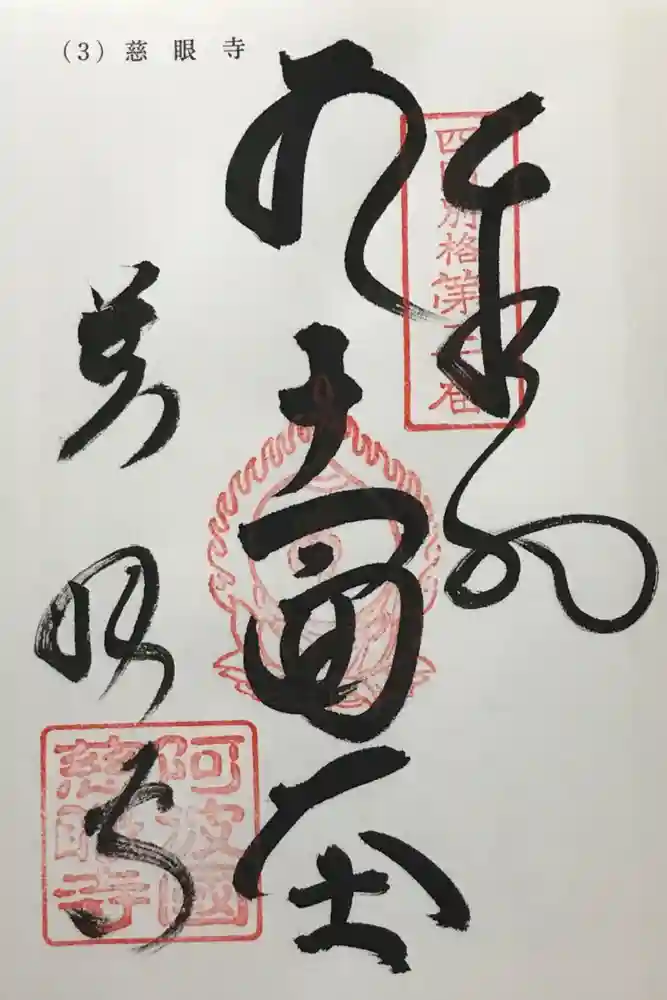 (3) 慈眼寺
奉納
四国別格第三番
十一面
慈眼寺
阿波國
慈眼寺